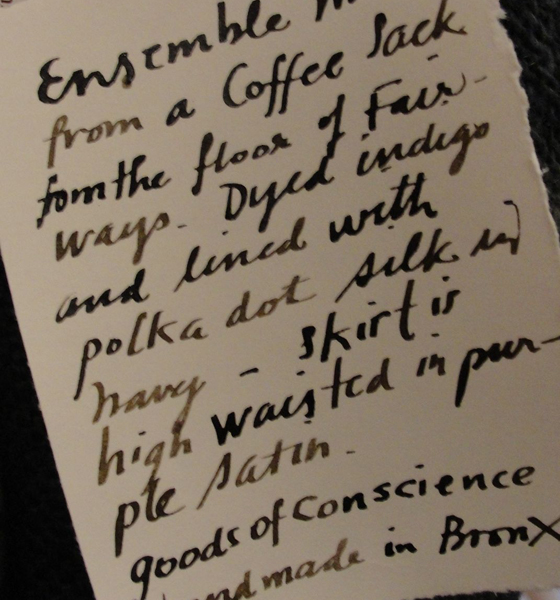 Ensemble m
from a Coffee Sack
fom the floor of Fair-
ways. Dyed indigo
and lined with
polka dot silk in
navy - Skirt is
high waisted in pur-
ple satin.
goods of Conscience
ndmade in BronX